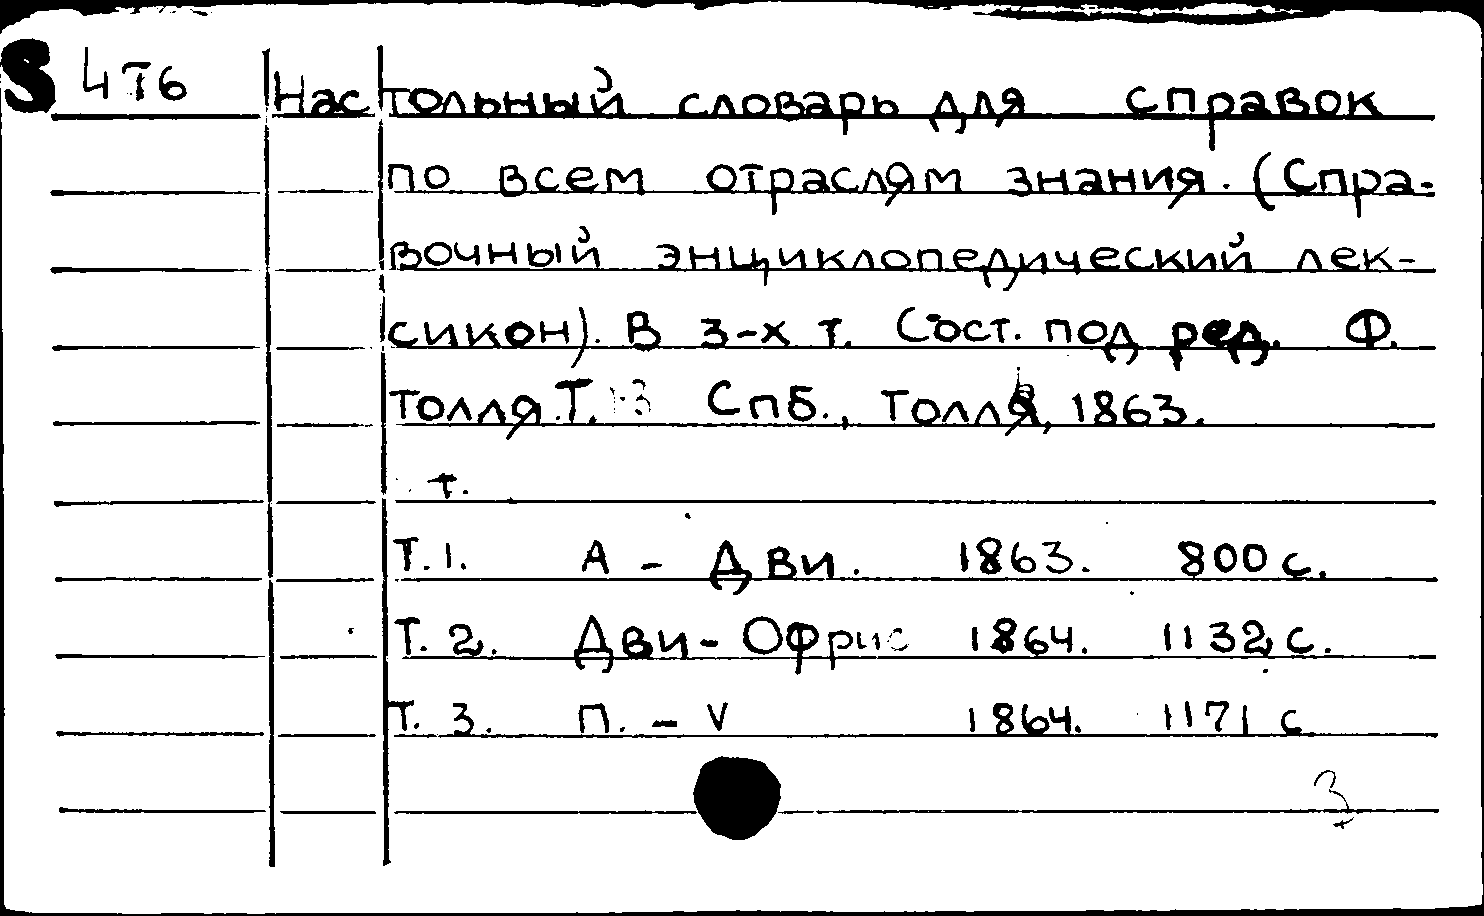 S 4Т6 Настольный словарь для справок
по всем отраслям знания. (Спра-
вочный энциклопедический лек-
сикон). В 3-х т. Сост. под ред. Ф.
Толля. Т. 1-3 Спб., Толль, 1863.
т.
Т. 1. А - Дви. 1863. 800 с.
Т. 2. Дви - Офрис 1864. 1132 с.
Т. 3. П. - V 1864. 1171 с.
3